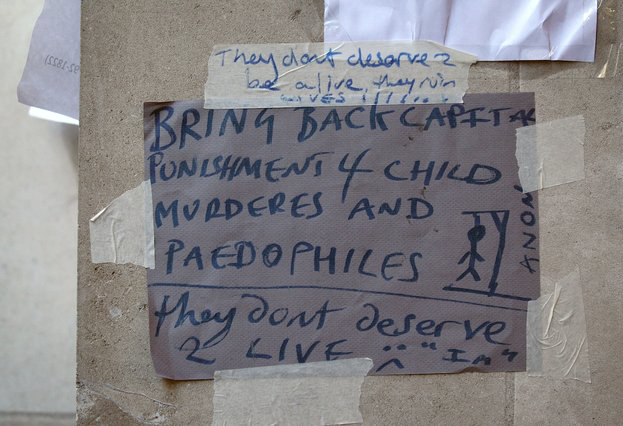 92-1822)
They dont deserve 2
be alive, they ruin
LIVES !!!!!!
BRING BACK CAPITAL
PUNISHMENT 4 CHILD
MURDERES AND
PAEDOPHILES
ANON
they dont deserve
2 LIVE